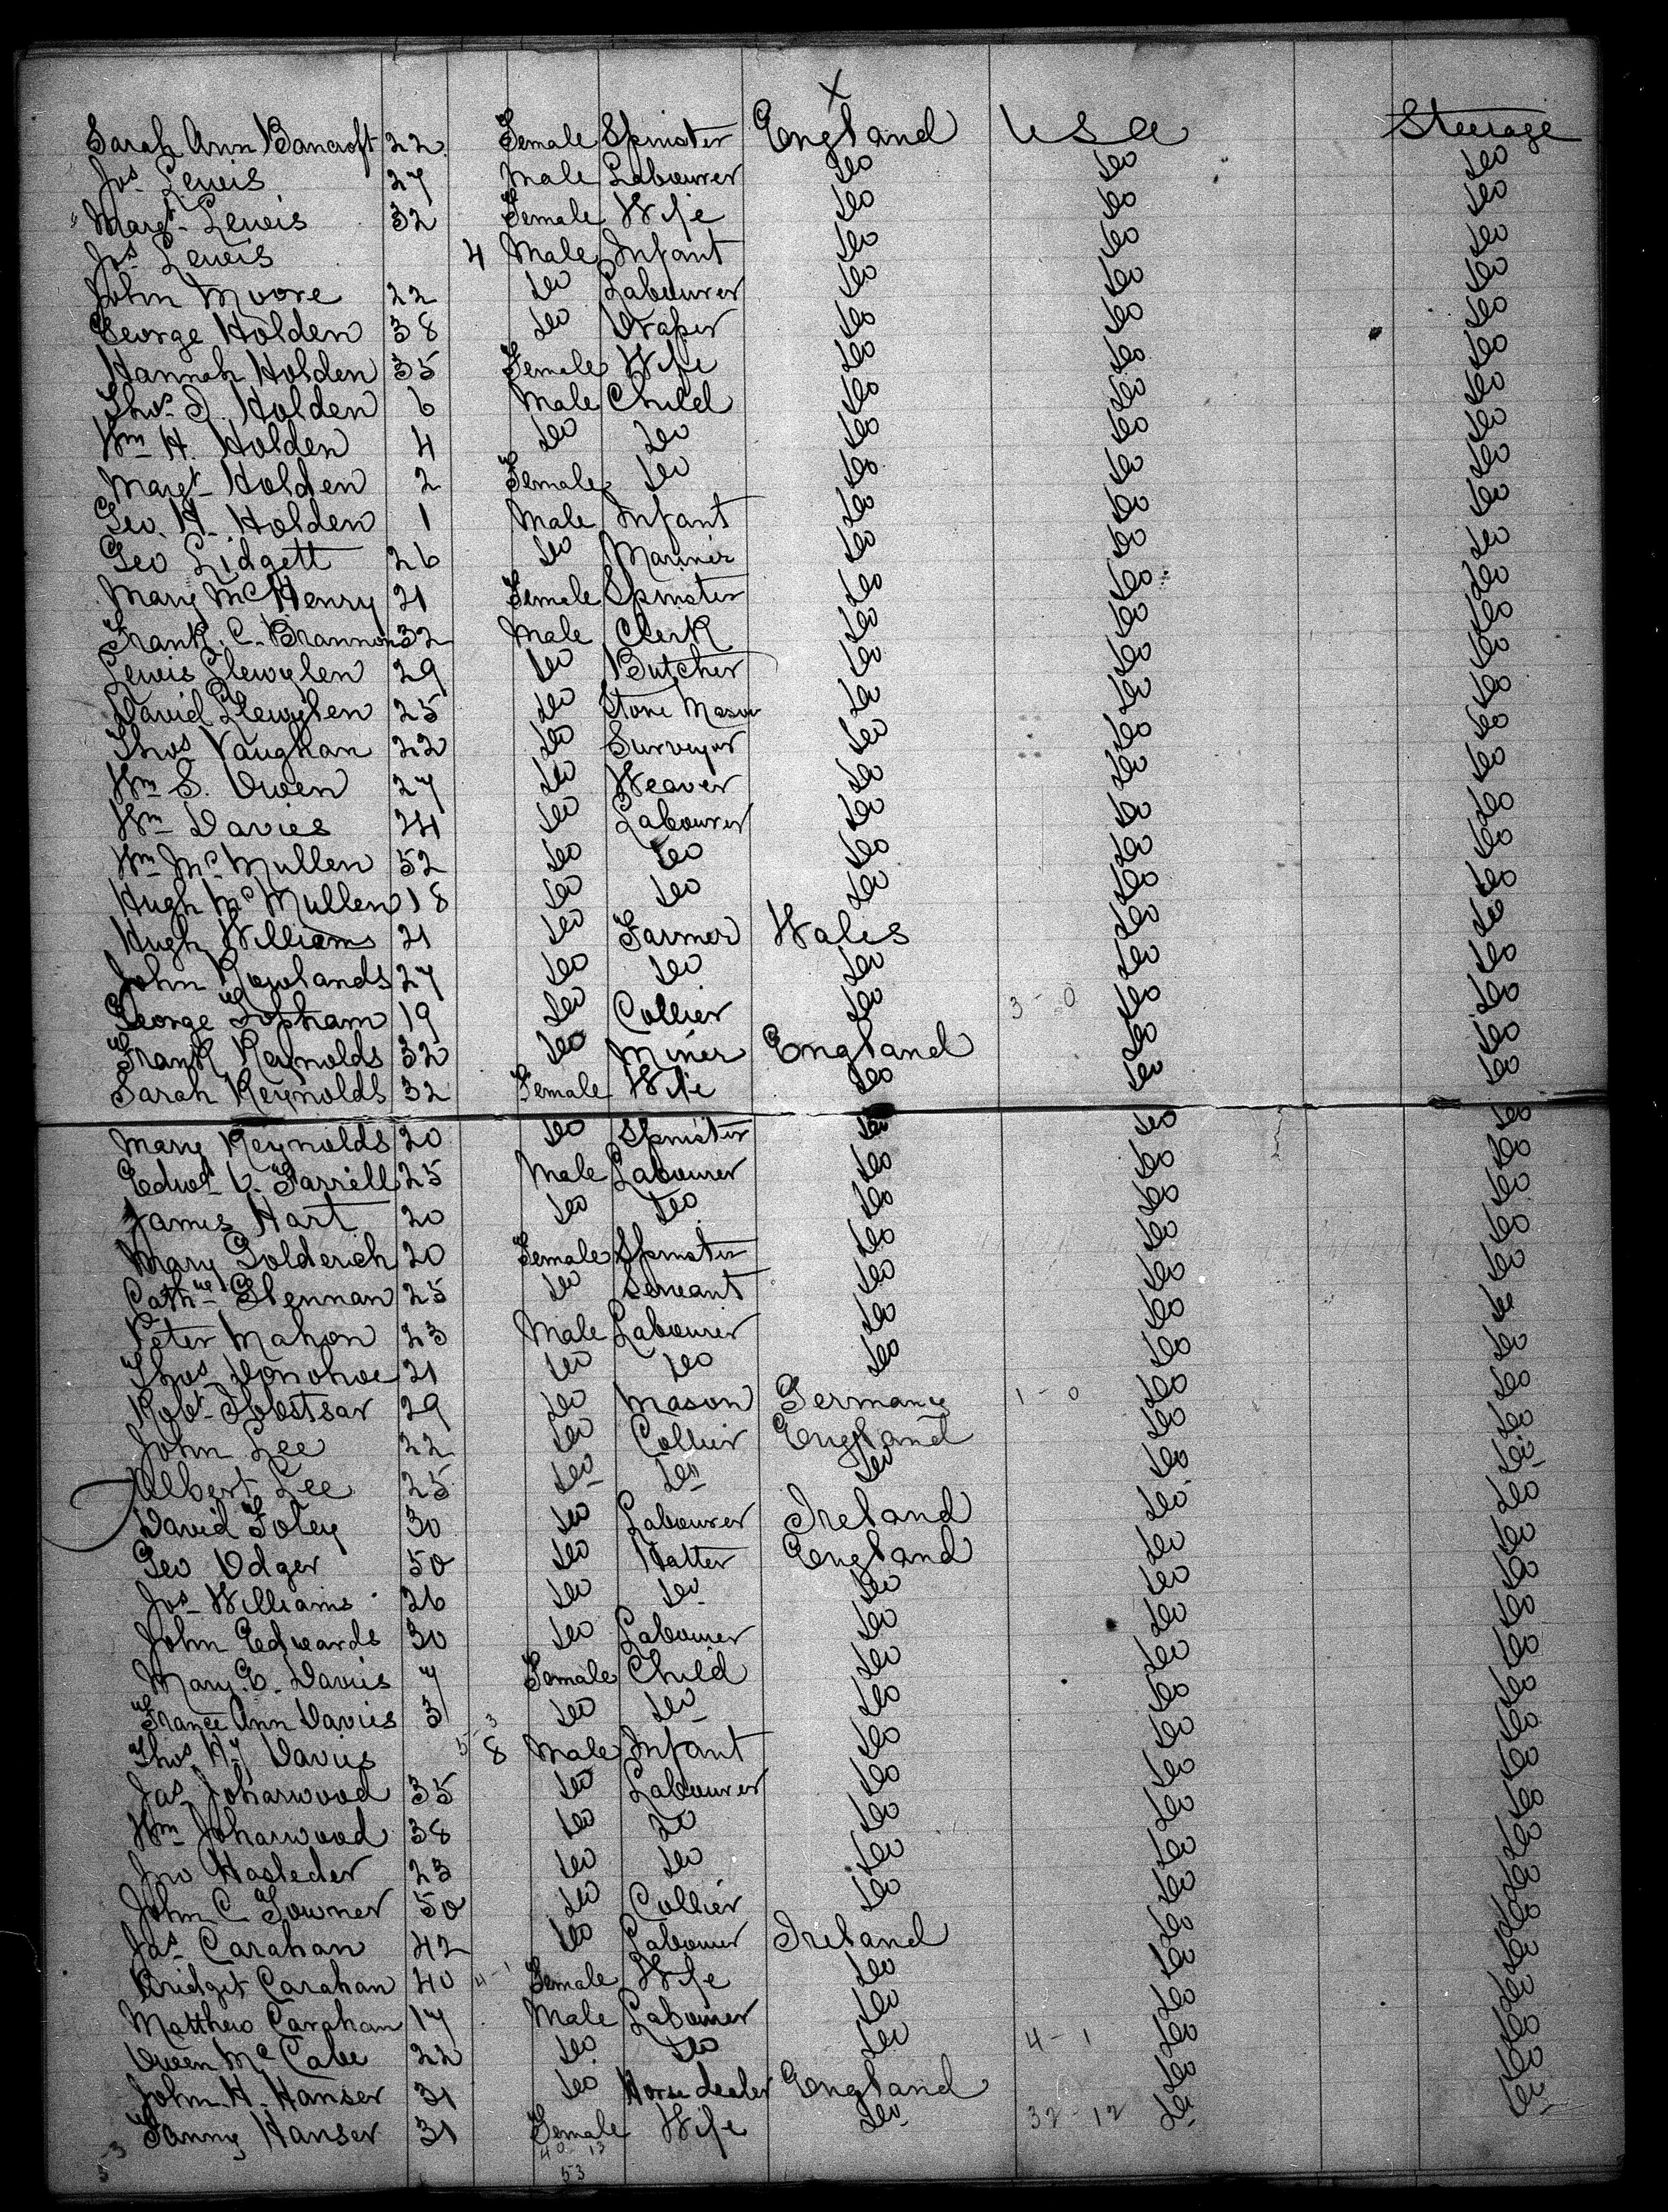 X
Sarah Ann Bancroft 22 Female Spinster England U S A Steerage
Jos Lewis 27 Male Labourer Do Do Do
Margt Lewis 32 Female Wife Do Do Do
Jos Lewis 4 Male Infant Do Do Do
John Moore 22 Do Labourer Do Do Do
George Holden 38 Do Draper Do Do Do
Hannah Holden 35 Female Wife Do Do Do
Thos Holden 6 Male Child Do Do Do
Wm H. Holden 4 Do Do Do Do Do
Margt Holden 2 Female Do Do Do Do
Geo. H. Holden 1 Male Infant Do Do Do
Geo Lidgett 26 Do Mariner Do Do Do
Mary McHenry 21 Female Spinster Do Do Do
Frank C. Brannon 32 Male Clerk Do Do Do
Lewis Llewylen 29 Do Butcher Do Do Do
David Llewylen 25 Do Stone Mason Do Do Do
Thos Vaughan 22 Do Surveyor Do Do Do
Wm S. Owen 27 Do Weaver Do Do Do
Wm Davies 24 Do Labourer Do Do Do
Wm McMullen 52 Do Do Do Do Do
Hugh McMullen 18 Do Do Do Do Do
Hugh Williams 21 Do Farmer Wales Do Do
John Rowlands 27 Do Do Do Do Do
George Topham 19 Do Collier Do 3-0 Do Do
Frank Reynolds 32 Do Miner England Do Do
Sarah Reynolds 32 Female Wife Do Do Do
Mary Reynolds 20 Do Spinster Do Do Do
Edwd Farrell 25 Male Labourer Do Do Do
James Hart 20 Do Do Do Do Do
Mary Golderich 20 Female Spinster Do Do Do
Cathne Glennan 25 Do Servant Do Do Do
Peter Mahon 23 Male Labourer Do Do Do
Thos Donohoe 21 Do Do Do Do Do
Robt 29 Do Mason Germany 1-0 Do Do
John Lee 22 Do Collier England Do Do
Albert Lee 25 Do Do Do Do Do
David Foley 30 Do Labourer Ireland Do Do
Geo Odger 50 Do Hatter England Do Do
Jos Williams 26 Do Do Do Do Do
John Edwards 30 Do Labourer Do Do Do
Mary. E. Davies 7 Female Child Do Do Do
France Ann Davies 3 Do Do Do Do Do
Thos Hy Davies 5-3 8 Male Infant Do Do Do
Jas Joharwood 35 Do Labourer Do Do Do
Wm Joharwood 38 Do Do Do Do Do
Jno Hasleder 23 Do Do Do Do Do
John C Towner 50 Do Collier Do Do Do
Jas Carahan 42 Do Labourer Ireland Do Do
Bridget Carahan 40 4-1 Female Wife Do Do Do
Matthew Carahan 17 Male Labourer Do Do Do
Owen McCabe 22 Do Do Do 4-1 Do Do
John H. Hanser 31 Do Horse dealer England Do Do
Fanny Hanser 31 Female Wife Do 32-12 Do Do
5-3 40-13
53